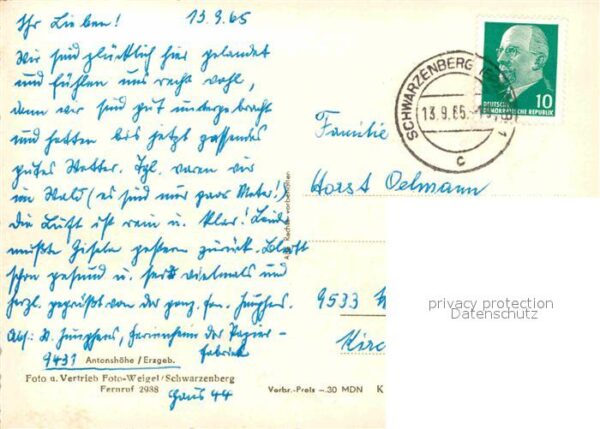 Ihr Lieben! 13.9.65
Wir sind glücklich hier gelandet
und fühlen uns recht wohl,
denn wir sind gut untergebracht
und hatten bis jetzt passendes
gutes Wetter. Tgl. waren wir
im Wald (es sind nur paar Meter!)
die Luft ist rein u. klar! Leider
mußte Gisela gestern zurück. Bleibt
schön gesund u. seid vielmals und
herzl. gegrüßt von der ganz. Fam. Junghans.
Abs: Junghans, Ferienheim der Papier-
fabrik
9431 Antonshöhe / Erzgeb.
Foto u. Vertrieb Foto-Weigel/Schwarzenberg
Fernruf 2988
Haus 44
Alle Rechte vorbehalten
Verbr.-Preis —.30 MDN K
SCHWARZENBERG
13.9.65.
c
1
10
DEUTSCHE
DEMOKRATISCHE REPUBLIK
Familie
Horst Oelmann
9533
Kirc
privacy protection
Datenschutz